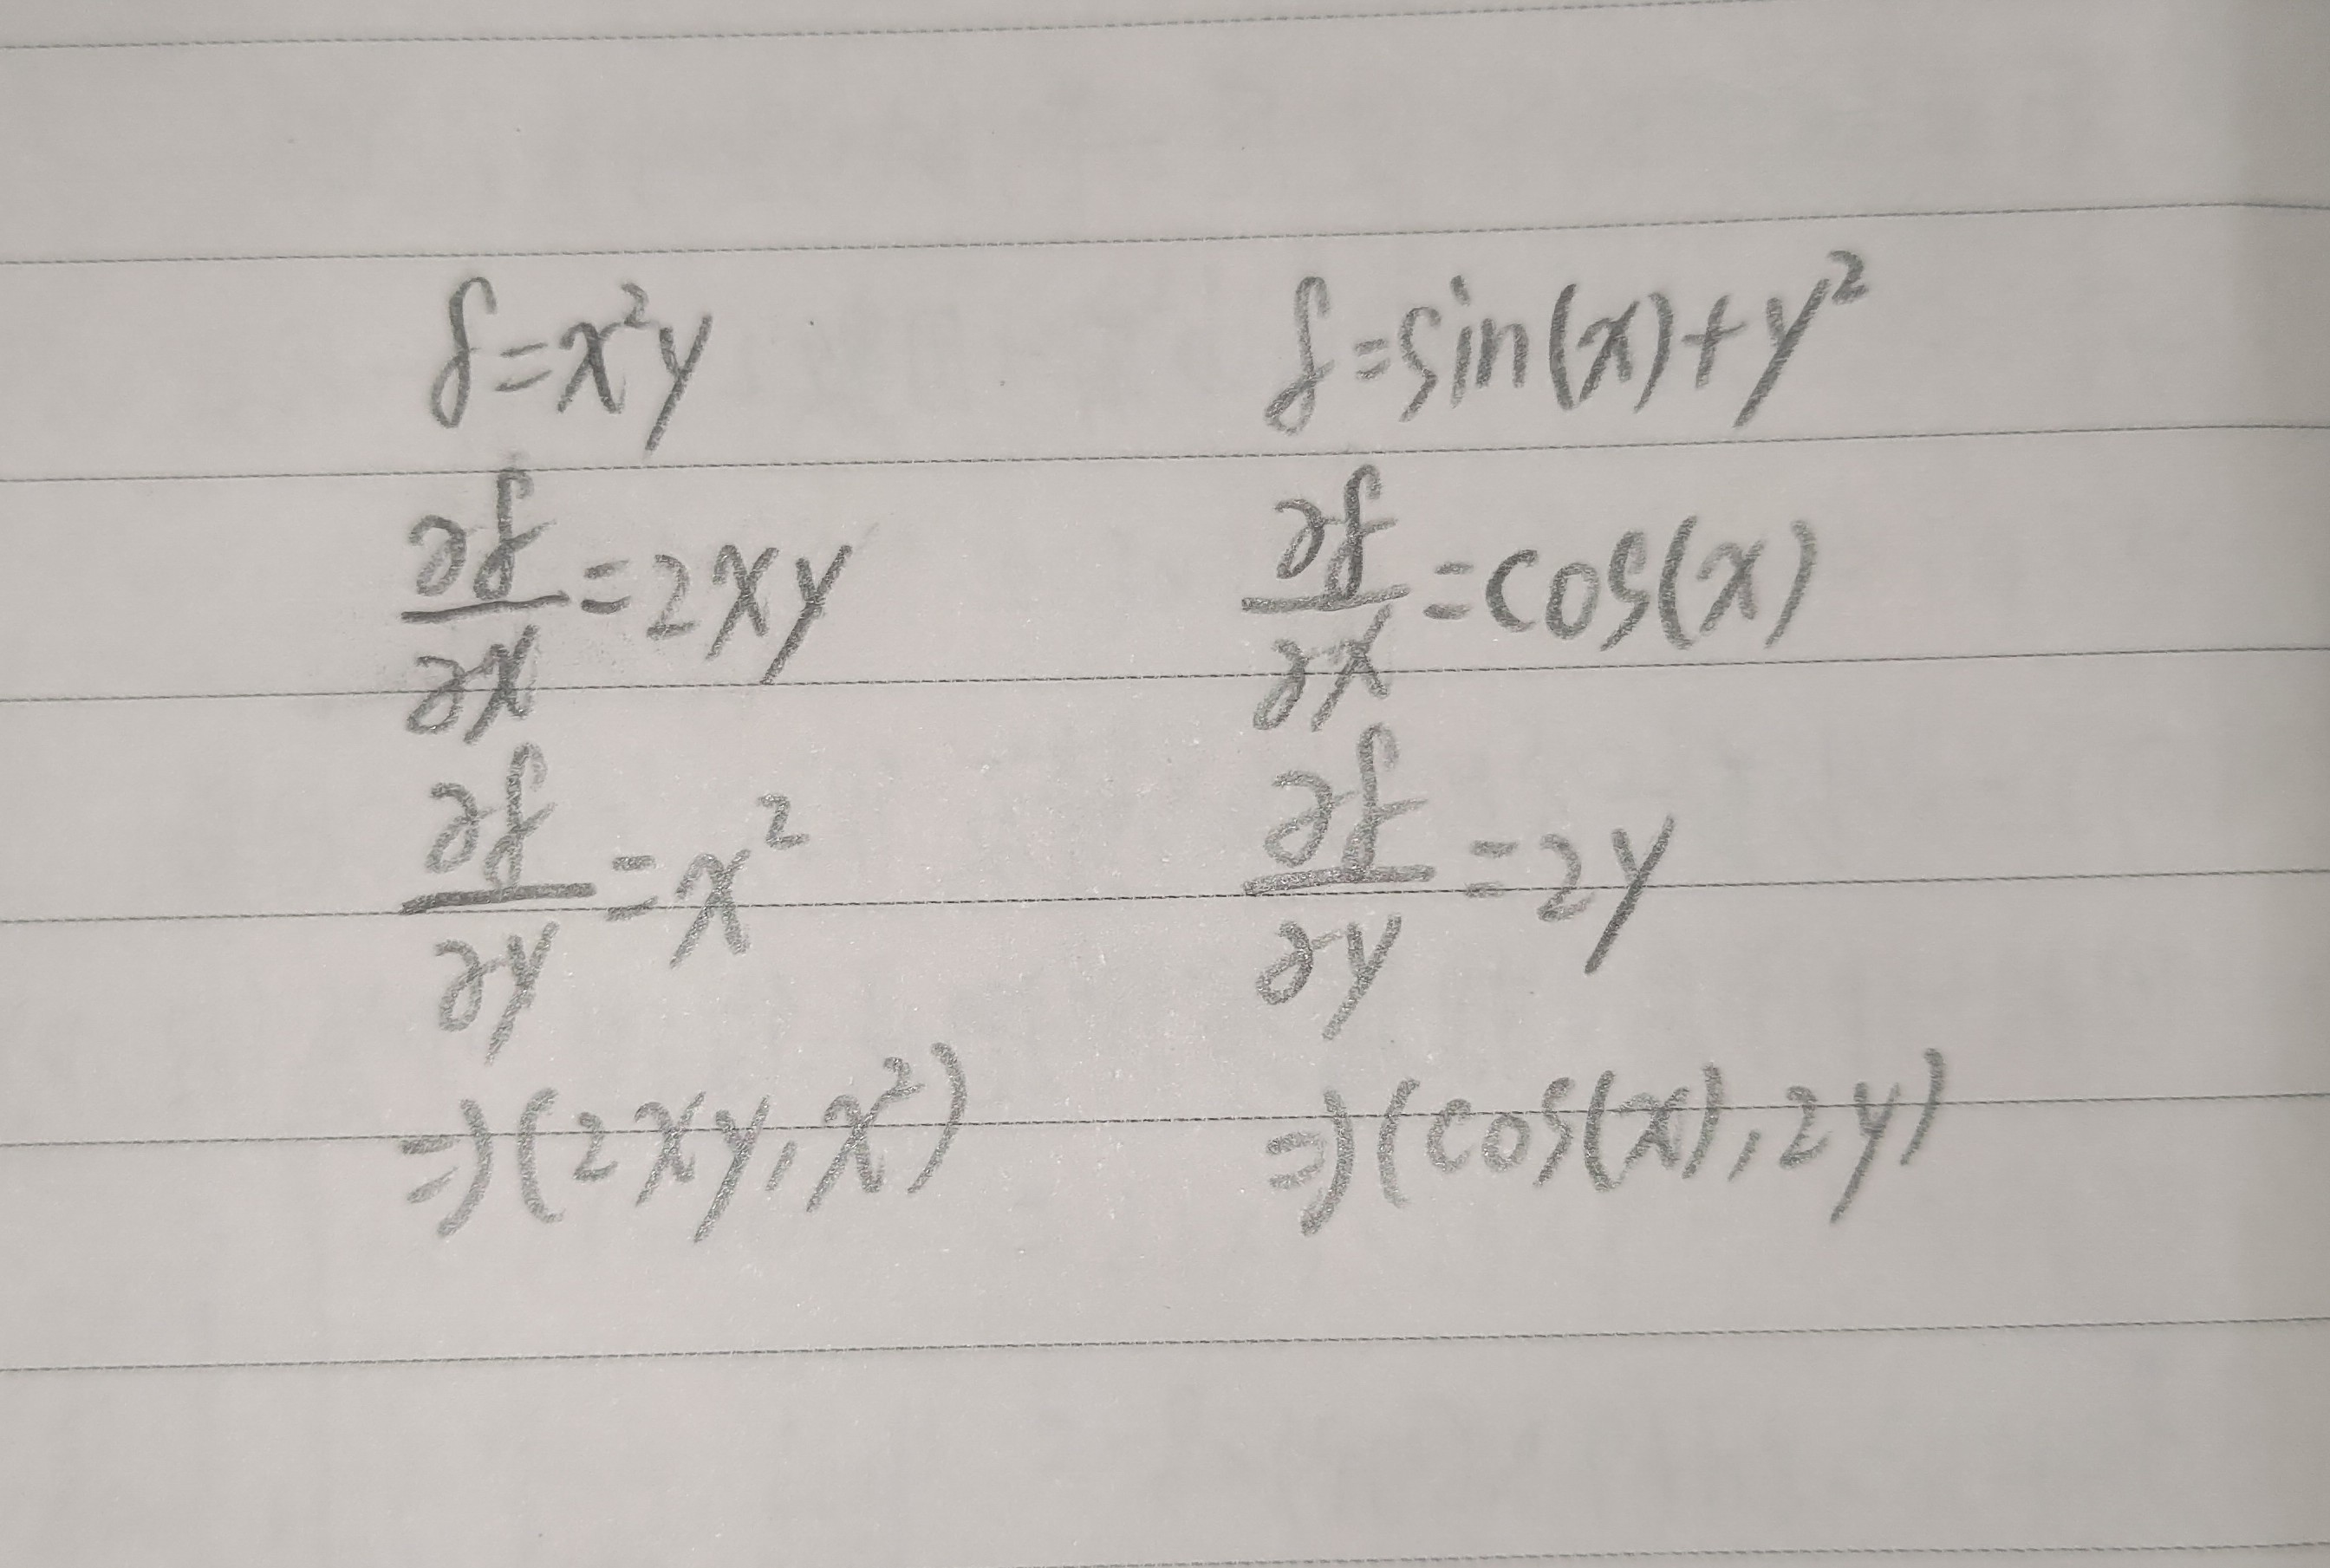 f=x²y
∂f/∂x=2xy
∂f/∂y=x²
⇒(2xy,x²)
f=sin(x)+y²
∂f/∂x=cos(x)
∂f/∂y=2y
⇒(cos(x),2y)